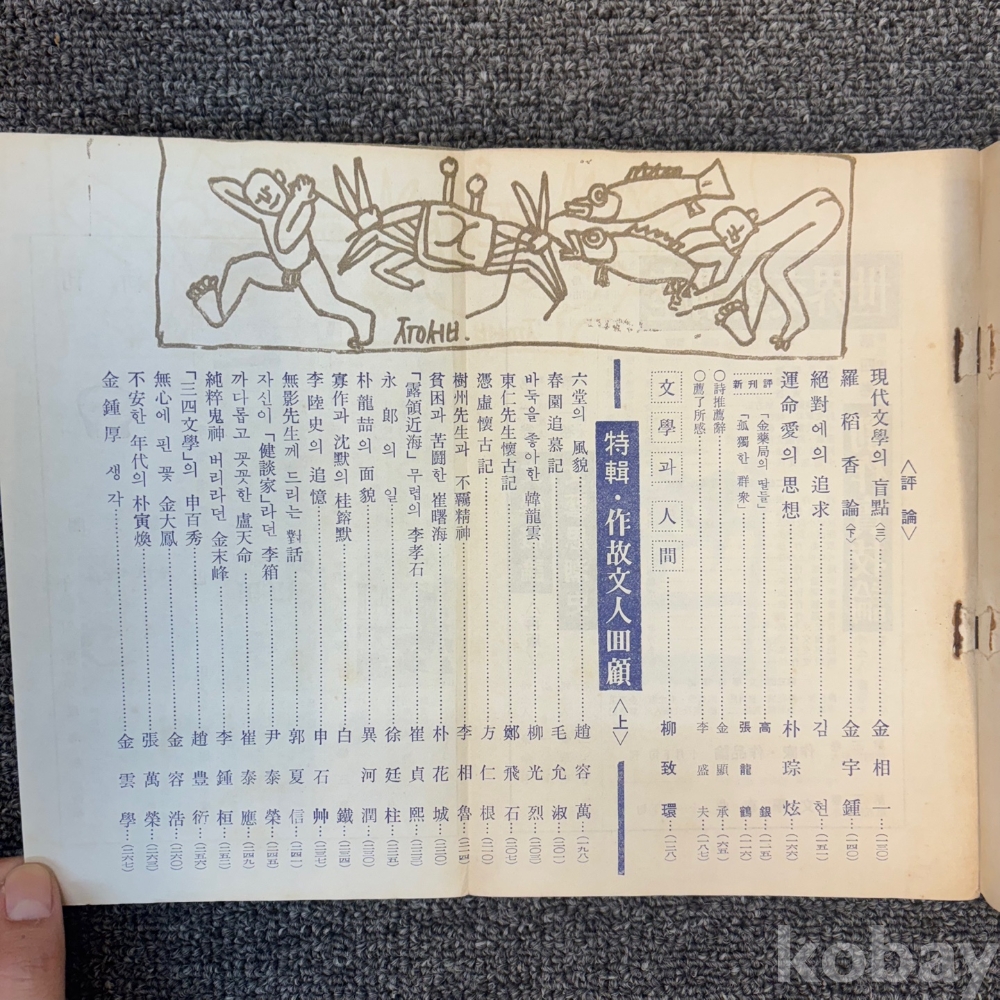 차이세ㅂ.
〈評論〉
現代文學의 盲點(三)……金相一…(一三〇)
羅稻香論(下)……金宇鍾…(一四〇)
絕對에의 追求……김현…(一五一)
運命愛의 思想……朴琮炫…(一六六)
新刊評
「金藥局의 딸들」……高銀…(一一五)
「孤獨한 群衆」……張龍鶴…(一一六)
○詩推薦辭……金顯承…(六五)
○薦了所感……李盛夫…(一八七)
文學과 人間……柳致環…(一二八)
特輯・作故文人回顧〈上〉
六堂의 風貌……趙容萬…(一九八)
春園追慕記……毛允淑…(二〇一)
바둑을 좋아한 韓龍雲……柳光烈…(二〇三)
東仁先生懷古記……鄭飛石…(二〇七)
憑虛懷古記……方仁根…(二一〇)
樹州先生과 不羈精神……李相魯…(二一四)
貧困과 苦鬪한 崔曙海……朴花城
「露領近海」무렵의 李孝石……崔貞熙…(二三〇)
永郎의 일……徐廷柱…(二二五)
朴龍喆의 面貌……異河潤…(二三〇)
寡作과 沈默의 桂鎔默……白鐵…(二三四)
李陸史의 追憶……申石艸…(二三七)
無影先生께 드리는 對話……郭夏信…(二四一)
자신이「健談家」라던 李箱……尹泰榮…(二四五)
까다롭고 꼿꼿한 盧天命……崔泰應…(二四九)
純粹鬼神 버리라던 金末峰……李鍾桓…(二五二)
「三四文學」의 申百秀……趙豊衍…(二五六)
無心에 핀 꽃 金大鳳……金容浩…(二六〇)
不安한 年代의 朴寅煥……張萬榮…(二六三)
金鍾厚 생각……金雲學…(二六七)
kobay